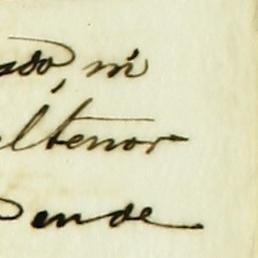 ado, ni
el tenor
pende